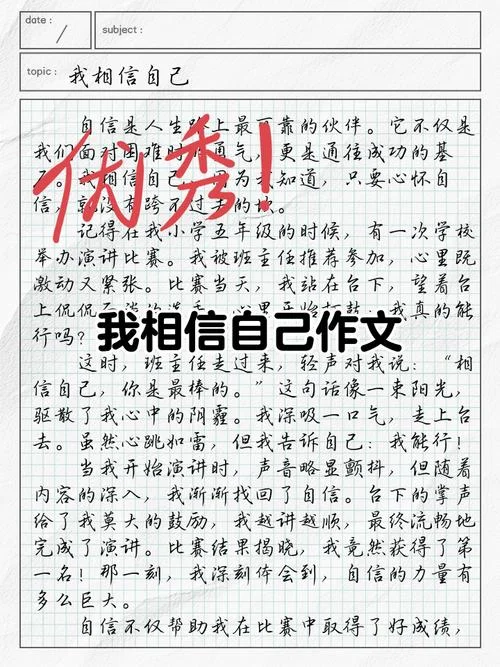 date :
subject :
topic :
我相信自己
自信是人生路上最可靠的伙伴。它不仅是
我们面对困难时的勇气，更是通往成功的基
石。我相信自己，因为我知道，只要心怀自
信，就没有跨不过去的坎。
优秀！
记得在我小学五年级的时候，有一次学校
举办演讲比赛。我被班主任推荐参加，心里既
激动又紧张。比赛当天，我站在台下，望着台
上侃侃而谈的选手，心里开始打鼓：我真的能
行吗？
我相信自己作文
这时，班主任走过来，轻声对我说：“相
信自己，你是最棒的。”这句话像一束阳光，
驱散了我心中的阴霾。我深吸一口气，走上台
去。虽然心跳如雷，但我告诉自己：我能行！
当我开始演讲时，声音略显颤抖，但随着
内容的深入，我渐渐找回了自信。台下的掌声
给了我莫大的鼓励，我越讲越顺，最终流畅地
完成了演讲。比赛结果揭晓，我竟然获得了第
一名！那一刻，我深刻体会到，自信的力量有
多么巨大。
自信不仅帮助我在比赛中取得了好成绩，